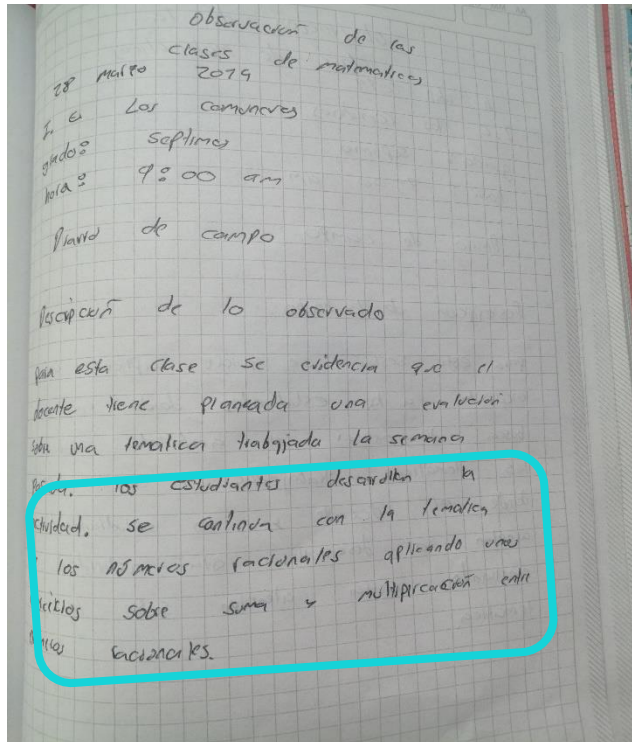 Observación de las
clases de matematicas
28 marzo 2019
I. E Los comuneros
grado: septimo
hora: 9:00 am
Diario de campo
Descripción de lo observado
para esta clase se evidencia que el
docente tiene planeada una evalución
sobre una tematica trabajada la semana
pasada. los estudiantes desarrollan la
actividad. se continua con la tematica
los números racionales aplicando unos
sobre suma y multiplicación entre
racionales.